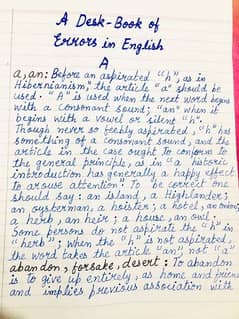 A Desk-Book of
Errors in English
A
a, an: Before an aspirated "h", as in
Hibernianism, the article "a" should be
used. "A" is used when the next word begins
with a consonant sound; "an" when it
begins with a vowel or silent "h".
Though never so feebly aspirated, "h" has
something of a consonant sound, and the
article in the case ought to conform to
the general principle, as in "a historic
introduction has generally a happy effect
to arouse attention. To be correct one
should say: an island, a Highlander;
an oysterman, a hoister; a hotel, an
a herb, an heir; a house, an owl.
Some persons do not aspirate the "h" in
"herb"; when the "h" is not aspirated,
the word takes the article "an" not "a"
abandon, forsake, desert: To abandon
is to give up entirely, as home and friends
and implies previous association with